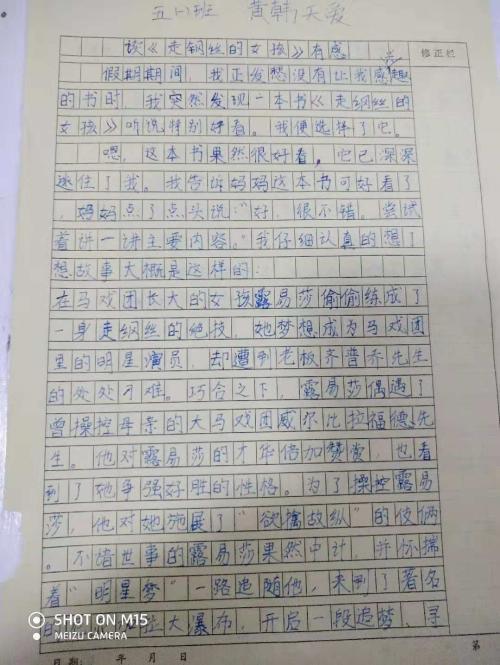 五(一)班 黄韩天爱
读《走钢丝的女孩》有感
修正栏
假期期间,我正发愁没有让我感兴趣
的书时,我突然发现一本书《走纲丝的
女孩》听说特别好看。我便选择了它。
嗯,这本书果然很好看,它已深深
迷住了我。我告诉妈妈这本书可好看了
,妈妈点了点头说:“好,很不错。尝试
着讲一讲主要内容。”我仔细认真的想了
想故事大概是这样的:
在马戏团长大的女孩露易莎偷偷练成了
一身走纲丝的绝技,她梦想成为马戏团
里的明星演员,却遭到老板齐普乔先生
的处处刁难。巧合之下,露易莎偶遇了
曾操控母亲的大马戏团威尔比拉福德先
生。他对露易莎的才华倍加赞赏,也看
到了她争强好胜的性格。为了操控露易
莎,他对她施展了“欲擒故纵”的伎俩
。不谙世事的露易莎果然中计,并怀揣
着“明星梦”一路追随他,来到了著名
的 拉大瀑布,开启一段追梦、寻
日期: 年 月 日
第
SHOT ON M15
MEIZU CAMERA